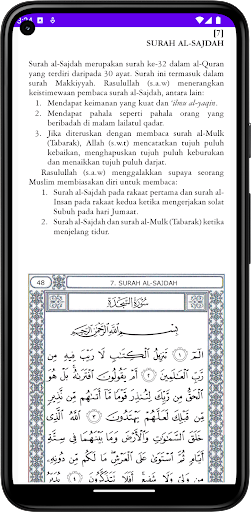 [7]
SURAH AL-SAJDAH
Surah al-Sajdah merupakan surah ke-32 dalam al-Quran
yang terdiri daripada 30 ayat. Surah ini termasuk dalam
surah Makkiyyah. Rasulullah (s.a.w) menerangkan
keistimewaan pembaca surah al-Sajdah, antara lain:
1. Mendapat keimanan yang kuat dan ‘ilmu al-yaqin.
2. Mendapat pahala seperti pahala orang yang
beribadah di malam lailatul qadar.
3. Jika diteruskan dengan membaca surah al-Mulk
(Tabarak), Allah (s.w.t) mencatatkan tujuh puluh
kebaikan, menghapuskan tujuh puluh keburukan
dan menaikkan tujuh puluh darjat.
Rasulullah (s.a.w) menggalakkan supaya seorang
Muslim membiasakan diri untuk membaca:
1. Surah al-Sajdah pada rakaat pertama dan surah al-
Insan pada rakaat kedua ketika mengerjakan solat
Subuh pada hari Jumaat.
2. Surah al-Sajdah dan surah al-Mulk (Tabarak) ketika
menjelang tidur.
48 7. SURAH AL-SAJDAH
سُورَةُ السَّجْدَةِ
بِسْمِ اللَّهِ الرَّحْمَٰنِ الرَّحِيمِ
الٓمٓ ١ تَنزِيلُ الْكِتَابِ لَا رَيْبَ فِيهِ مِن
رَّبِّ الْعَالَمِينَ ٢ أَمْ يَقُولُونَ افْتَرَاهُ بَلْ هُوَ
الْحَقُّ مِن رَّبِّكَ لِتُنذِرَ قَوْمًا مَّا أَتَاهُم مِّن نَّذِيرٍ
مِّن قَبْلِكَ لَعَلَّهُمْ يَهْتَدُونَ ٣ اللَّهُ الَّذِي
خَلَقَ السَّمَاوَاتِ وَالْأَرْضَ وَمَا بَيْنَهُمَا فِي سِتَّةِ
أَيَّامٍ ثُمَّ اسْتَوَىٰ عَلَى الْعَرْشِ مَا لَكُم مِّن دُونِهِ